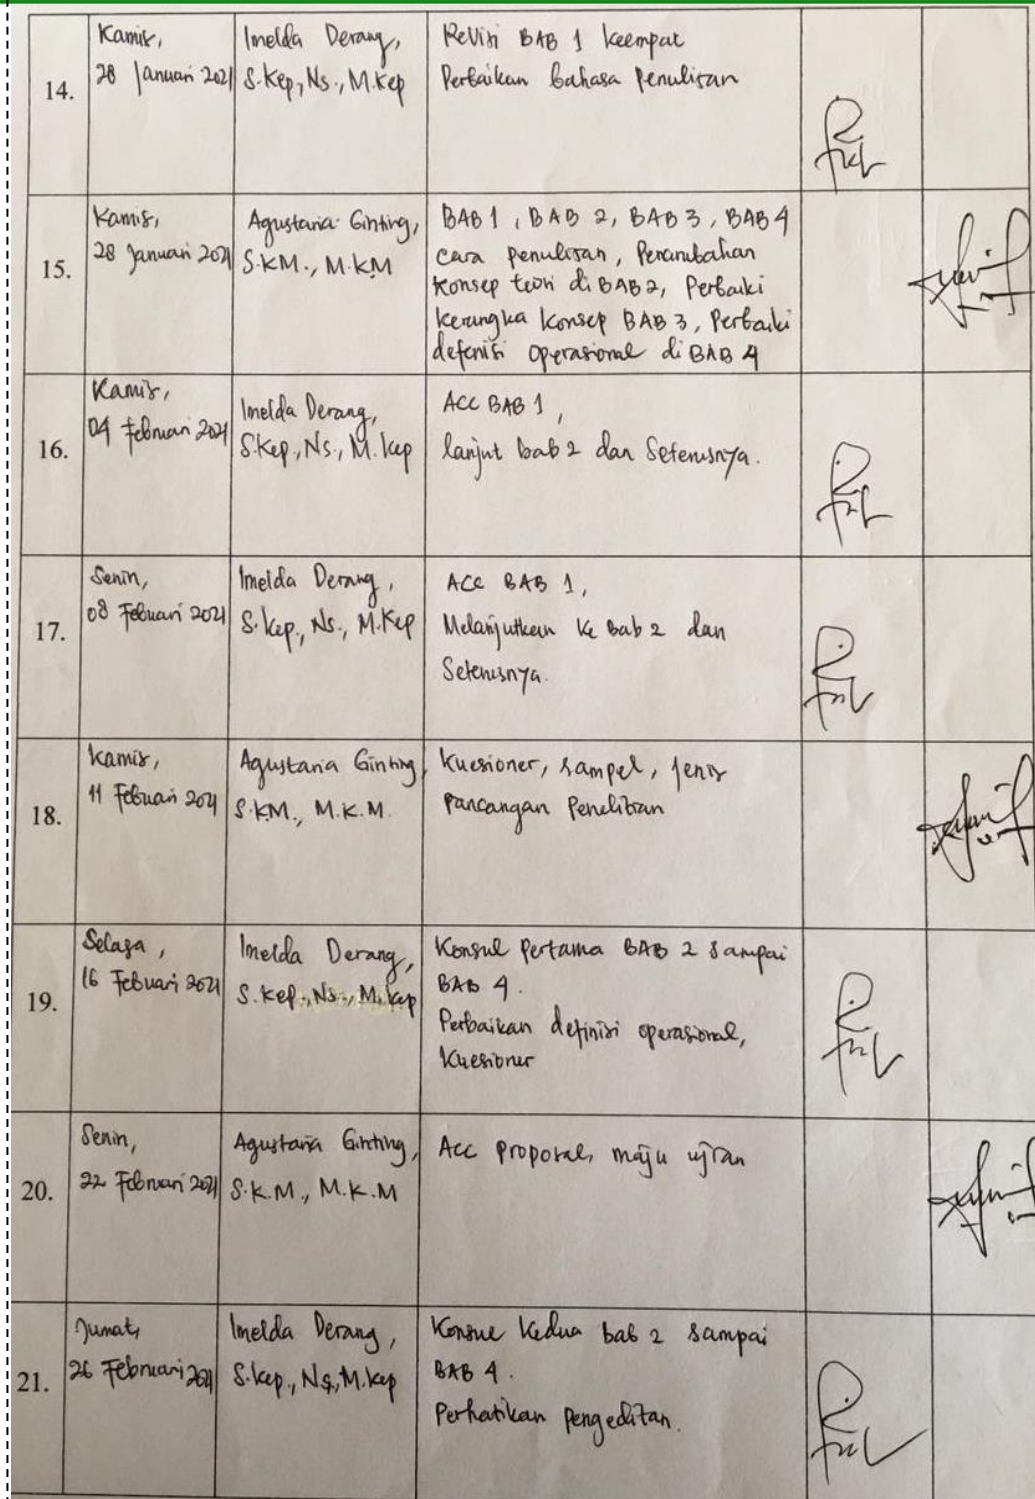 14.
Kamis,
28 Januari 2021
Imelda Derang,
S.Kep., Ns., M.Kep
Revisi BAB 1 keempat
Perbaikan bahasa penulisan
15.
Kamis,
28 Januari 2021
Agustaria Ginting,
S.KM., M.KM
BAB 1, BAB 2, BAB 3, BAB 4
cara penulisan, Penambahan
Konsep teori di BAB 2, Perbaiki
kerangka konsep BAB 3, Perbaiki
defenisi operasional di BAB 4
16.
Kamis,
04 Februari 2021
Imelda Derang,
S.Kep., Ns., M.Kep
ACC BAB 1,
lanjut bab 2 dan Seterusnya.
17.
Senin,
08 Febuari 2021
Imelda Derang,
S.Kep., Ns., M.Kep
ACC BAB 1,
Melanjutkan ke Bab 2 dan
Seterusnya.
18.
Kamis,
11 Febuari 2021
Agustaria Ginting,
S.KM., M.K.M.
Kuesioner, sampel, jenis
rancangan Penelitian
19.
Selasa,
16 Febuari 2021
Imelda Derang,
S.Kep., Ns., M.Kep
Konsul Pertama BAB 2 sampai
BAB 4.
Perbaikan definisi operasional,
Kuesioner
20.
Senin,
22 Februari 2021
Agustaria Ginting,
S.K.M., M.K.M
Acc proposal, maju ujian
21.
Jumat,
26 Februari 2021
Imelda Derang,
S.Kep., Ns., M.Kep
Konsul Kedua bab 2 sampai
BAB 4.
Perhatikan Pengeditan.